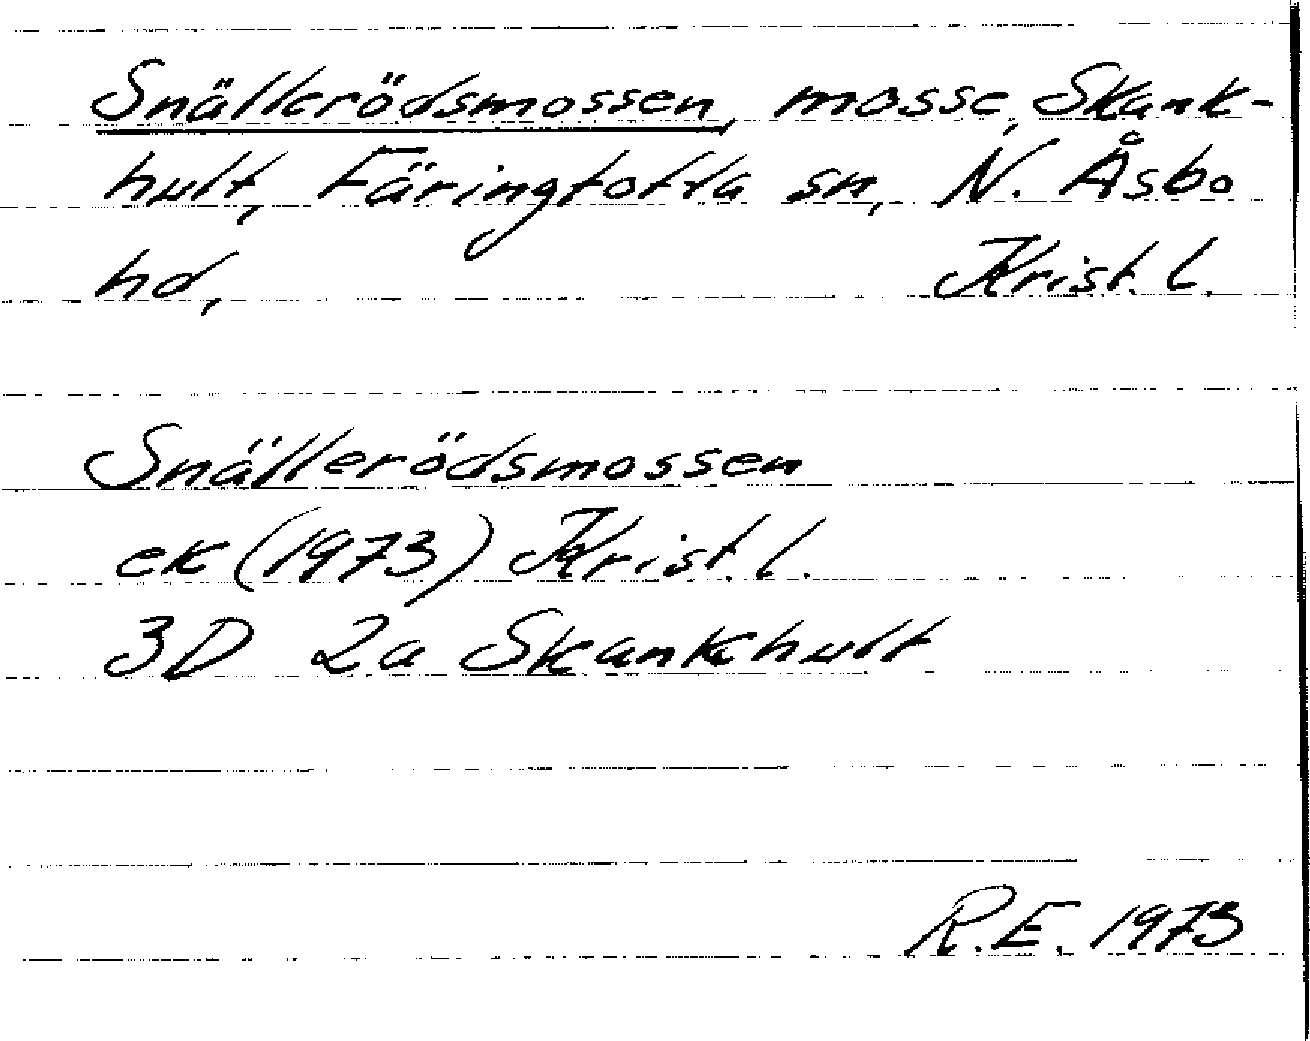 Snällerödsmossen, mosse, Skank-
hult, Färingtofta sn, N. Åsbo
hd, Krist. l.
Snällerödsmossen
ek (1973) Krist. l.
3D 2a Skankhult
R.E. 1973